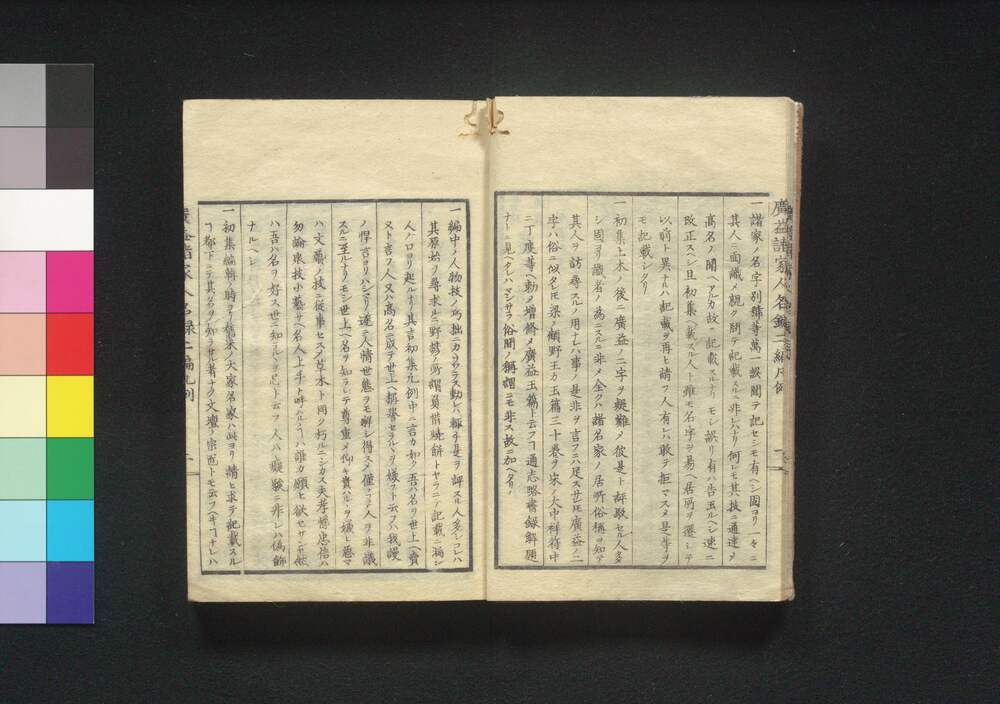 廣益諸家人名録二編凡例
一諸家ノ名字別號等萬一誤聞テ記セシモ有ヘシ固ヨリ一々ニ
其人ニ面識メ親ク問テ記載スルニ非レハナリ何レモ其技ニ通達メ
髙名ノ聞ヘアルカ故ニ記載スルナリモシ誤リ有ハ告玉ルヘシ速ニ
改正スヘシ且初集ニ載スル人ト雖モ名字ヲ易ヘ居所ヲ遷シテ
以前ト異ナルハ記載ヲ再ヒ請フ人有レハ敢テ拒マスメ是等ヲ
モ記載シタリ
一初集上木ノ後ニ廣益ノ二字ヲ疑難ノ彼是ト評駁セル人多
シ固ヨリ識者ノ爲ニスルニ非メ全クハ諸名家ノ居所俗稱ヲ知テ
其人ヲ訪尋スルノ用ナレハ事ノ是非ヲ言フニハ足ス廣益ノ二
字ハ俗ニ似タレモ梁ノ顧野王カ玉篇三十巻ヲ宋ノ大中祥符中
ニ丁度等ヘ勅メ増脩メ廣益玉篇ト云フヿ通志略書録解題
ナトニ見ヘタレハマシサラ俗間ノ稱謂ニモ非ス故ニ加ヘタリ
一編中ノ人物技ノ巧拙ニカヽワラス動レハ輙チ是ヲ評スル人多シコレハ
其原始ノ尋求ルニ野鄙ノ所謂負惜燒餅トヤラニテ記載ニ漏シ
人ノ口ヨリ起ルナリ其言初集凡例中ニ言カ如ク吾ハ名ヲ世上ヘ賣
ヌト言フ人又ハ髙名ニ成テ世上ヘ稱譽セラルヽヲ嫌フト云フハ我慢
ノ悍言ヨリハシマリ遂ニ人情世態ヲモ解シ得スメ
スルニ至ルナリモシ世上ヘ名ヲ知ラレテ尊重メ仰キ貴ハルヽヲ嫌ヒ惡マ
ハ文藝ノ技ニ從事セスメ草木ト同ク朽ルニシカス夫孝悌忠信ハ
勿論衆技小藝サヘ名人上手ト呼ハルヽヿハ誰カ願ヒ欲セサラン
ハ吾ハ名ヲ好ス世ニ知ルヽヲ
ナルヘシ
一初集編輯ノ時ヨリ
ヿ都下ニテ其名ヲ知ラサル者ナク文壇ノ宗匠トモ云フヘキ
廣益諸家人名録二編凡例